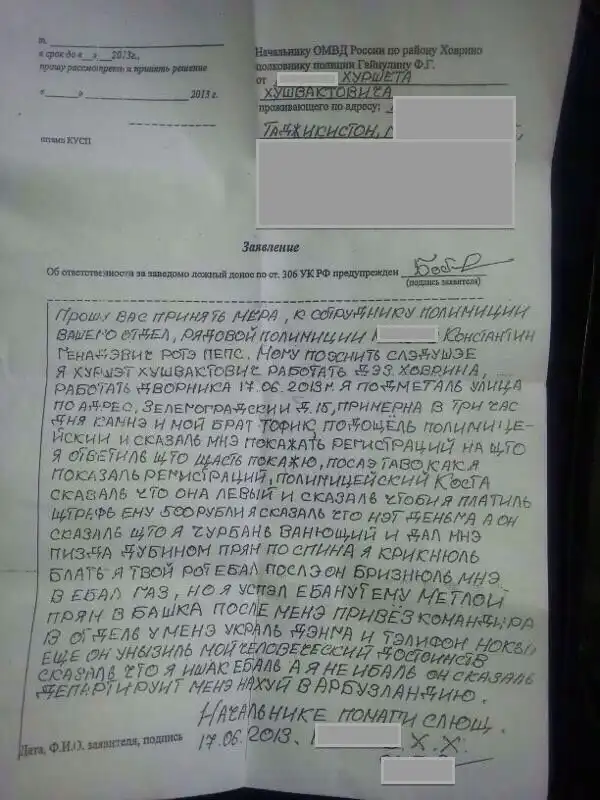 т. ____
в срок до «__»____2013г.,
прошу рассмотреть и принять решение
«____»____ 2013 г.
штамп КУСП
Начальнику ОМВД России по району Ховрино
полковнику полиции Гейнулину Ф.Г.
от ХУРШЕТА
ХУШВАКТОВИЧА
проживающего по адресу:
ТАДЖИКИСТОН,
Заявление
Об ответственности за заведомо ложный донос по ст. 306 УК РФ предупрежден
(подпись заявителя)
ПРОШУ ВАС ПРИНЯТЬ МЕРА, К СОТРУДНИКУ ПОЛИМИЦИИ
ВАШЕГО ОТДЕЛ, РЯДОВОЙ ПОЛИМИЦИИ КОНСТАНТИН
ГЕНАДЭВИЧ РОТЭ ПЕПС. МОМУ ПОЗСНИТЬ СЛЭДУШЭЕ
Я ХУРШЭТ ХУШВАКТОВИЧ РАБОТАТЬ ДЭЗ ХОВРИНА,
РАБОТАТЬ ДВОРНИКА 17.06.2013М. Я ПОДМЕТАЛЬ УЛИЦА
ПО АДРЕС, ЗЕЛЕМОГРАДСКИИ Д.15, ПРИМЕРНА В ТРИ ЧАС
ДНЯ КАМНЭ И МОЙ БРАТ ТОФИК ПОДОЩЁЛЬ ПОЛИМИЦЕ-
ЙСКИИ И СКАЗАЛЬ МНЭ ПОКАЖАТЬ РЕГИСТРАЦИЙ НА ЩТО
Я ОТВЕТИЛЬ ЩТО ЩАСТЬ ПОКАЖЮ, ПОСЛЭ ТАВО, КАК Я
ПОКАЗАЛЬ РЕМИСТРАЦИЙ, ПОЛИМИЦЕЙСКИЙ КОСТА
СКАЗАЛЬ ЧТО ОНА ЛЕВЫЙ И СКАЗАЛЬ ЧТОБИ Я ПЛАТИЛЬ
ЩТРАФЬ ЕМУ 500 РУБЛИ Я СКАЗАЛЬ ЧТО НЭТ ДЕНЬМА А ОН
СКАЗАЛЬ ЩТО Я ЧУРБАНЬ ВАНЮЩИЙ И ДАЛ МНЭ
ПИЗДА ДУБИНОМ ПРЯН ПО СПИНА Я КРИКНЮЛЬ
БЛАТЬ Я ТВОЙ РОТ ЕБАЛ ПОСЛЭ ОН БРИЗНЮЛЬ МНЭ
В ЕБАЛ ГАЗ, НО Я УСПЭЛ ЕБАНУТ ЕМУ МЕТЛОЙ
ПРЯМ В БАШКА ПОСЛЕ МЕНЭ ПРИВЁЗ КОМАНДИРА
В ОТДЕЛЬ У МЕНЭ УКРАЛЬ ДЭНМА И ТЭЛИФОН НОКЫ
ЕЩЕ ОН УНЫЗИЛЬ МОЙ ЧЕЛОВЕЧЕСКИЙ ДОСТОИНСТВ
СКАЗАЛЬ ЧТО Я ИШАК ЕБАЛЬ А Я НЕ ИБАЛЬ ОН СКАЗАЛЬ
ДЕПАРТИРУИТ МЕНЭ НАХУЙ В АРБУЗЛАНДИЮ.
НАЧАЛЬНИКЕ ПОМАГИ СЛЮЩ.
Дата, Ф.И.О. заявителя, подпись
17.06.2013. Х. Х.